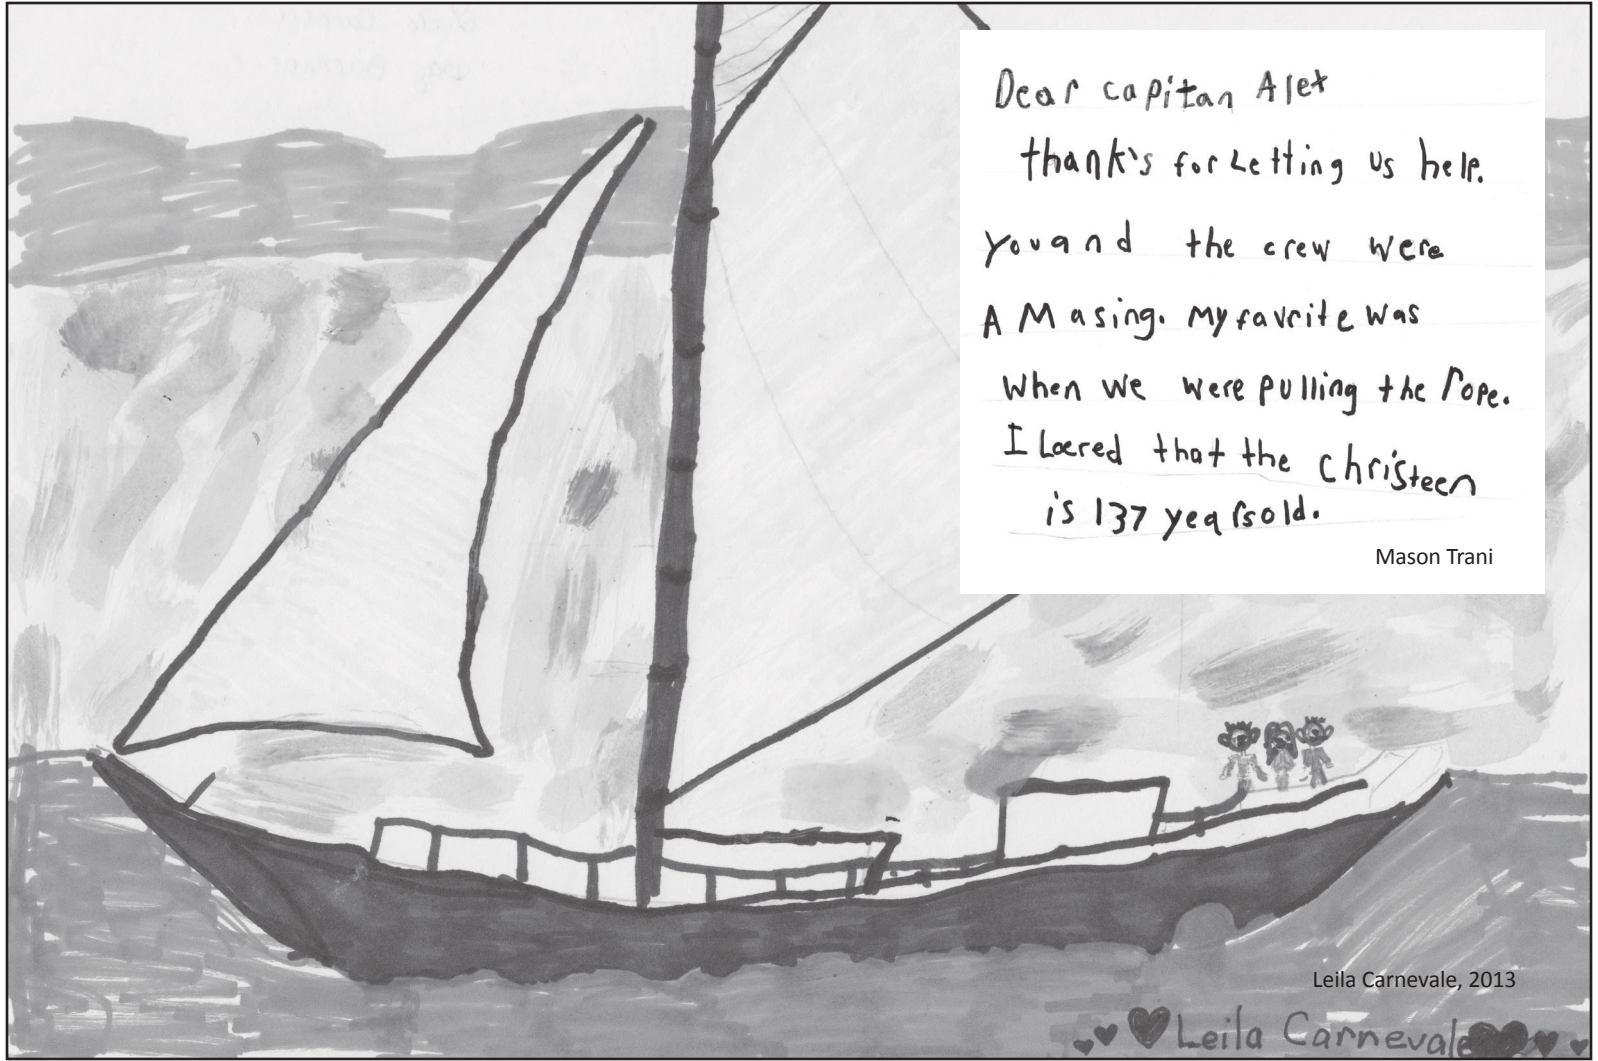 Dear capitan Alex
thank's for Letting us help.
you and the crew were
AMasing. My favrite was
when we were pulling the rope.
I Loered that the christeen
is 137 years old.
Mason Trani
Leila Carnevale, 2013
Leila Carnevale